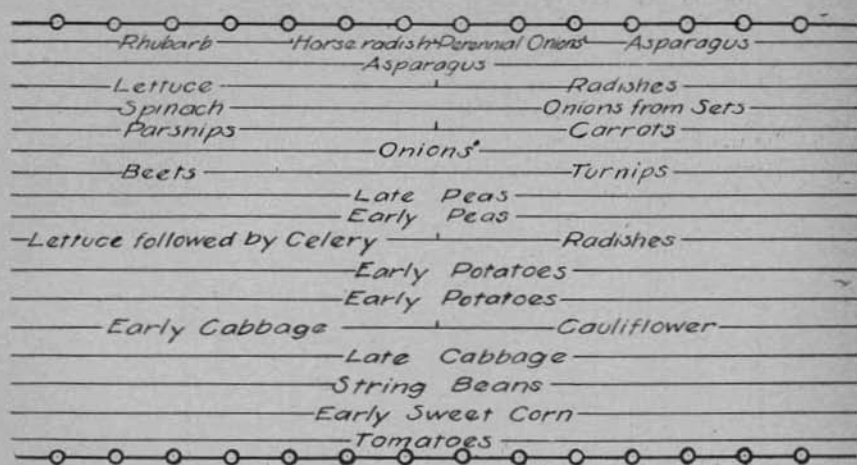 Rhubarb Horse radish Perennial Onions Asparagus
Asparagus
Lettuce Radishes
Spinach Onions from Sets
Parsnips Carrots
Onions
Beets Turnips
Late Peas
Early Peas
Lettuce followed by Celery Radishes
Early Potatoes
Early Potatoes
Early Cabbage Cauliflower
Late Cabbage
String Beans
Early Sweet Corn
Tomatoes